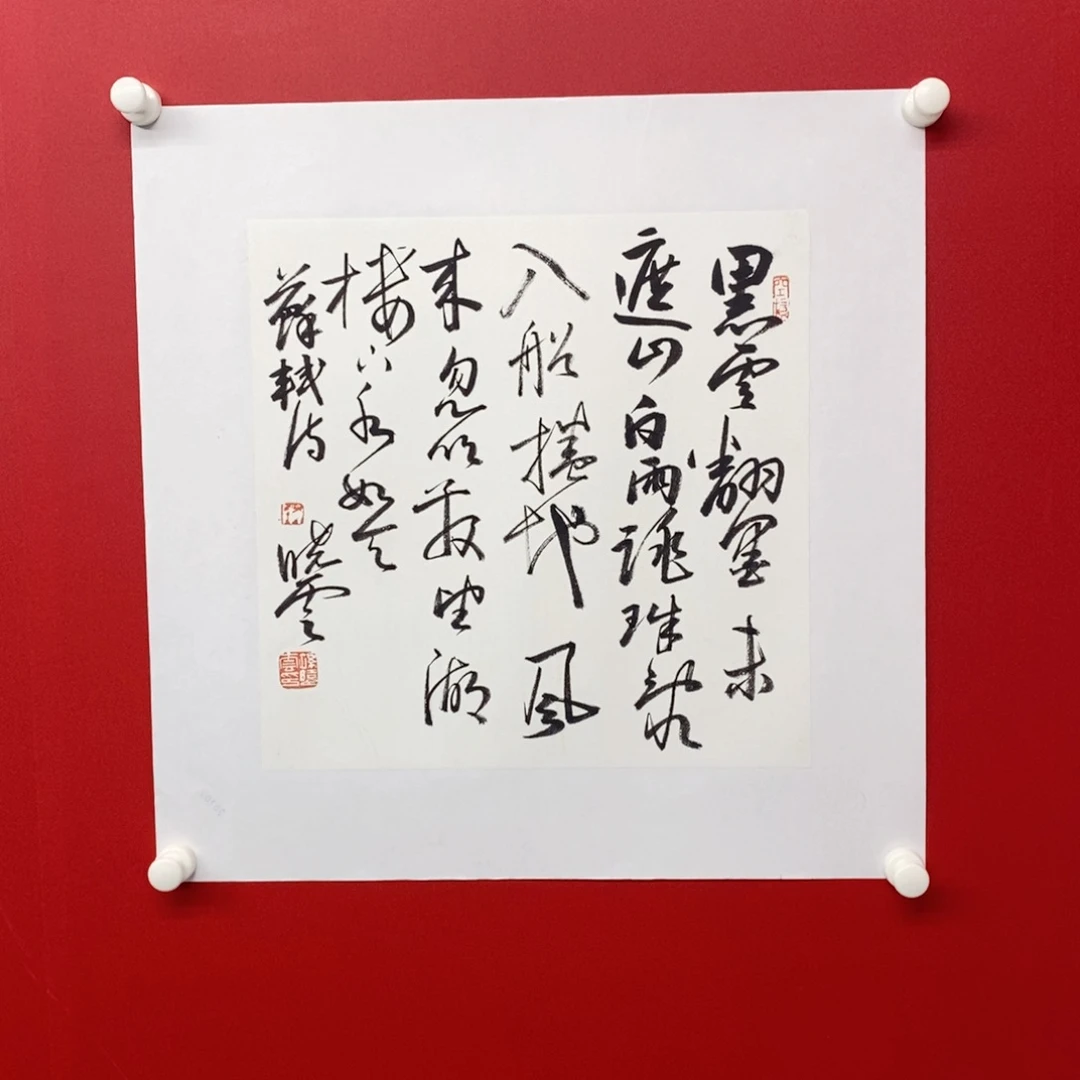 黑雲翻墨未
遮山白雨跳珠亂
入船捲地風
來忽吹散望湖
樓下水如天
蘇軾詩 曉雲